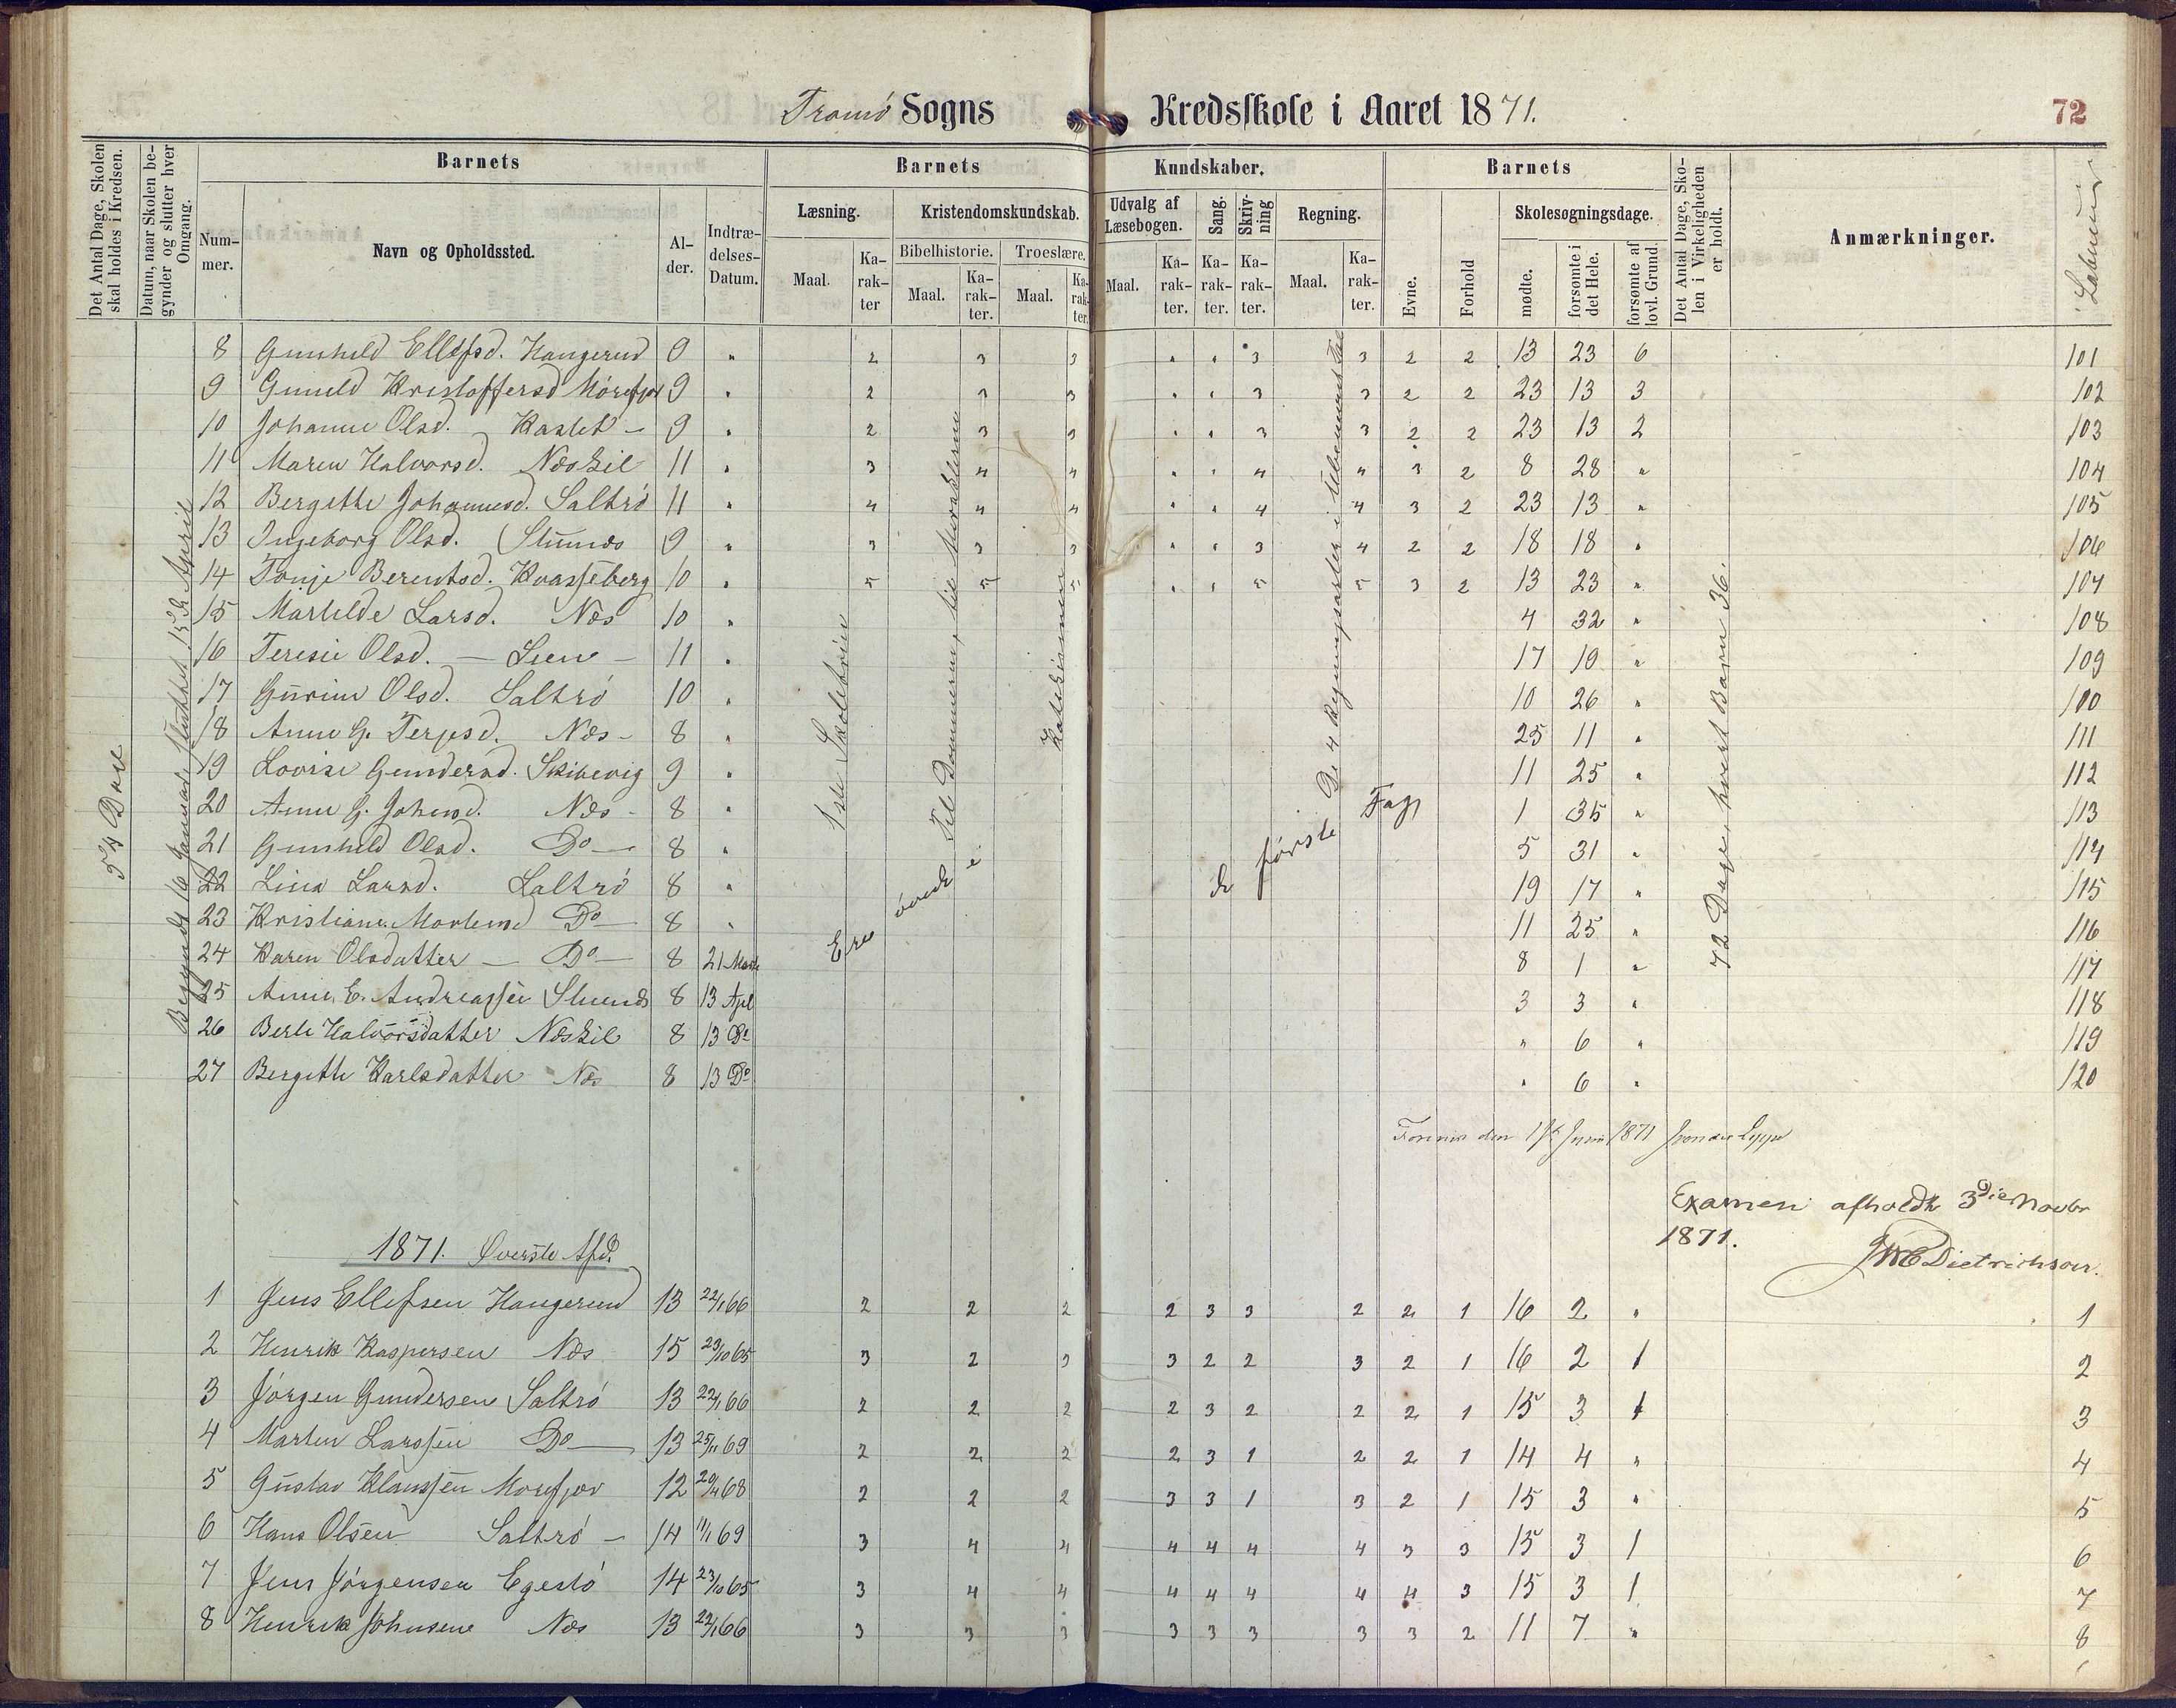 Tromø Sogns Kredsskole i Aaret 1871.
72
Det Antal Dage, Skolen skal holdes i Kredsen.
Datum, naar Skolen begynder og slutter hver Omgang.
Barnets
Barnets
Kundskaber.
Barnets
Det Antal Dage, Skolen i Virkeligheden er holdt.
Anmærkninger.
Løbenumr
Nummer.
Navn og Opholdssted.
Alder.
Indtrædelses-Datum.
Læsning.
Kristendomskundskab.
Udvalg af Læsebogen.
Sang.
Skrivning
Regning.
Evne.
Forhold
Skolesøgningsdage.
Bibelhistorie.
Troeslære.
Maal.
Karakter
Maal.
Karakter.
Maal.
Karakter.
Maal.
Karakter.
Karakter.
Karakter.
Maal.
Karakter.
mødte.
forsømte i det Hele.
forsømte af lovl. Grund.
54 Dage
Begyndt 16 Januar, sluttet 15de April
1ste Skoletrin
Ere øvede i
de første Fag
De 4 Regningsarter i Ubenævnt Tal
72 Dage, hvert Barn 36.
8 Gunhild Ellefsd. Haugerud 9 " 2 3 3 " " 3 3 2 2 13 23 6 101
9 Gunild Kristoffersd Mørefjær 9 " 2 3 3 " " 3 3 2 2 23 13 3 102
10 Johanne Olsd. Kastet - 9 " 2 3 3 " " 3 3 2 2 23 13 2 103
11 Maren Halvorsd. Neskil 11 " 3 4 4 " " 4 4 3 2 8 28 " 104
12 Bergithe Johannesd. Saltrø 11 " 4 4 4 " " 4 4 3 2 23 13 " 105
13 Ingeborg Olsd. Stuenæs 9 " 3 3 3 " " 3 4 2 2 18 18 " 106
14 Tonje Berentsd. Kvasseberg 10 " 5 5 5 " " 5 5 3 2 13 23 " 107
15 Mathilde Larsd. Næs 10 " 4 32 " 108
16 Teresie Olsd. - Lien - 11 " 17 19 " 109
17 Gurine Olsd. Saltrø 10 " 10 26 " 100
18 Anne G. Terjesd. Næs - 8 " 25 11 " 111
19 Lovise Gundersd. Skibevig 9 " 11 25 " 112
20 Anne G. Johnsd. Næs - 8 " 1 35 " 113
21 Gunhild Olsd. Do - 8 " 5 31 " 114
22 Lina Larsd. Saltrø 8 " 19 17 " 115
23 Kristiane Mortensd Do - 8 " 11 25 " 116
24 Karen Olsdatter - Do - 8 21 Marts 8 1 " 117
25 Anne E. Andreassen Stuenæs 8 13 Apl 3 3 " 118
26 Berte Halvorsdatter Neskil 8 13 Do " 6 " 119
27 Bergithe Karlsdatter Næs 8 13 Do " 6 " 120
den Juni 1871
Examen afholdt 3die Novbr
1871.
Dietrichson.
1871. Øverste Afd.
1 Jens Ellefsen Haugerud 13 22/1 66 2 2 2 2 3 3 2 2 1 16 2 " 1
2 Henrik Kaspersen Næs 15 23/10 65 3 2 3 3 2 2 3 2 1 16 2 1 2
3 Jørgen Gundersen Saltrø 13 22/1 66 2 2 2 2 3 2 2 2 1 15 3 1 3
4 Marten Larssen Do - 13 25/11 69 2 2 2 2 3 1 2 2 1 14 4 " 4
5 Gustav Klaussen Mørefjær 12 68 2 2 2 3 3 1 3 2 1 15 3 " 5
6 Hans Olsen Saltrø - 14 11/1 69 3 4 4 4 4 4 4 3 3 15 3 1 6
7 Jens Jørgensen Egestø 14 23/10 65 3 4 4 4 4 4 4 4 3 15 3 1 7
8 Henrik Johnsen Næs 13 22/1 66 3 3 3 3 3 3 3 3 2 11 7 " 8